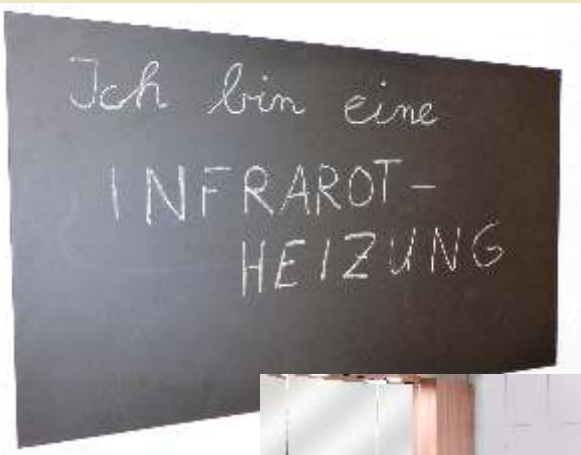 Ich bin eine
INFRAROT-
HEIZUNG